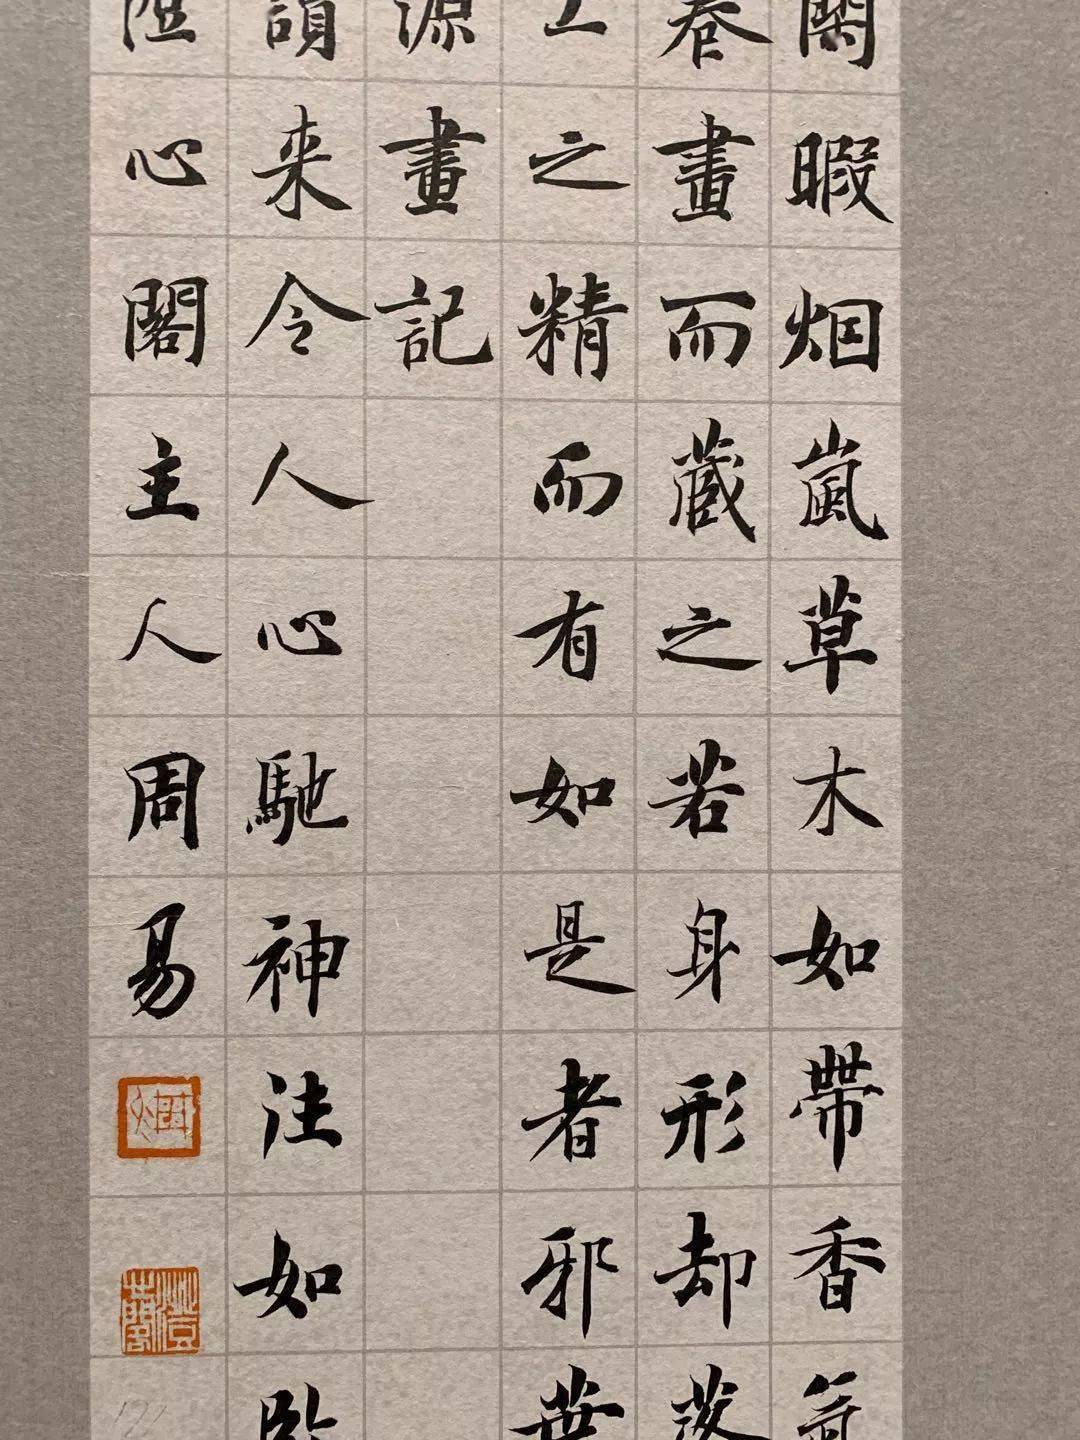 暇烟嵐草木如帶香
畫而藏之若身形却
之精而有如是者邪
源畫記
韻来令人心馳神注如
心閣主人周易